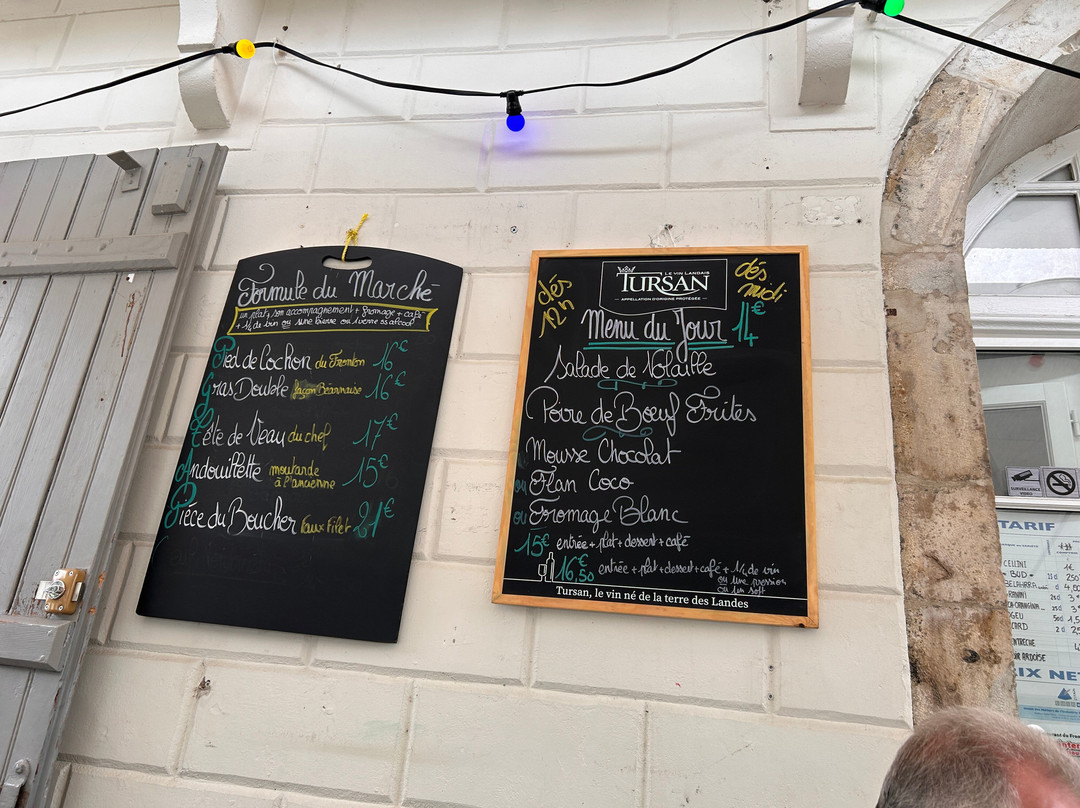 Formule du Marché
un plat, son accompagnement + fromage + café
+ ¼ de vin ou une bierre ou 1 verre ss alcool
Pied de Cochon du Fronton 16€
Gras Double façon Béarnaise 16€
Tête de Veau du chef 17€
Andouillette moutarde à l'ancienne 15€
Pièce du Boucher Faux Filet 21€
dés 12h
LE VIN LANDAIS
TURSAN
APPELLATION D'ORIGINE PROTÉGÉE
dés midi
Menu du Jour 14€
Salade de Volaille
Poire de Bœuf Frites
Mousse Chocolat
ou Flan Coco
ou Fromage Blanc
15€ entrée + plat + dessert + café
16,50 entrée + plat + dessert + café + ¼ de vin
ou une pression
ou un soft
Tursan, le vin né de la terre des Landes
SURVEILLANCE
VIDEO
TARIF
CELLINI 1€
BUD